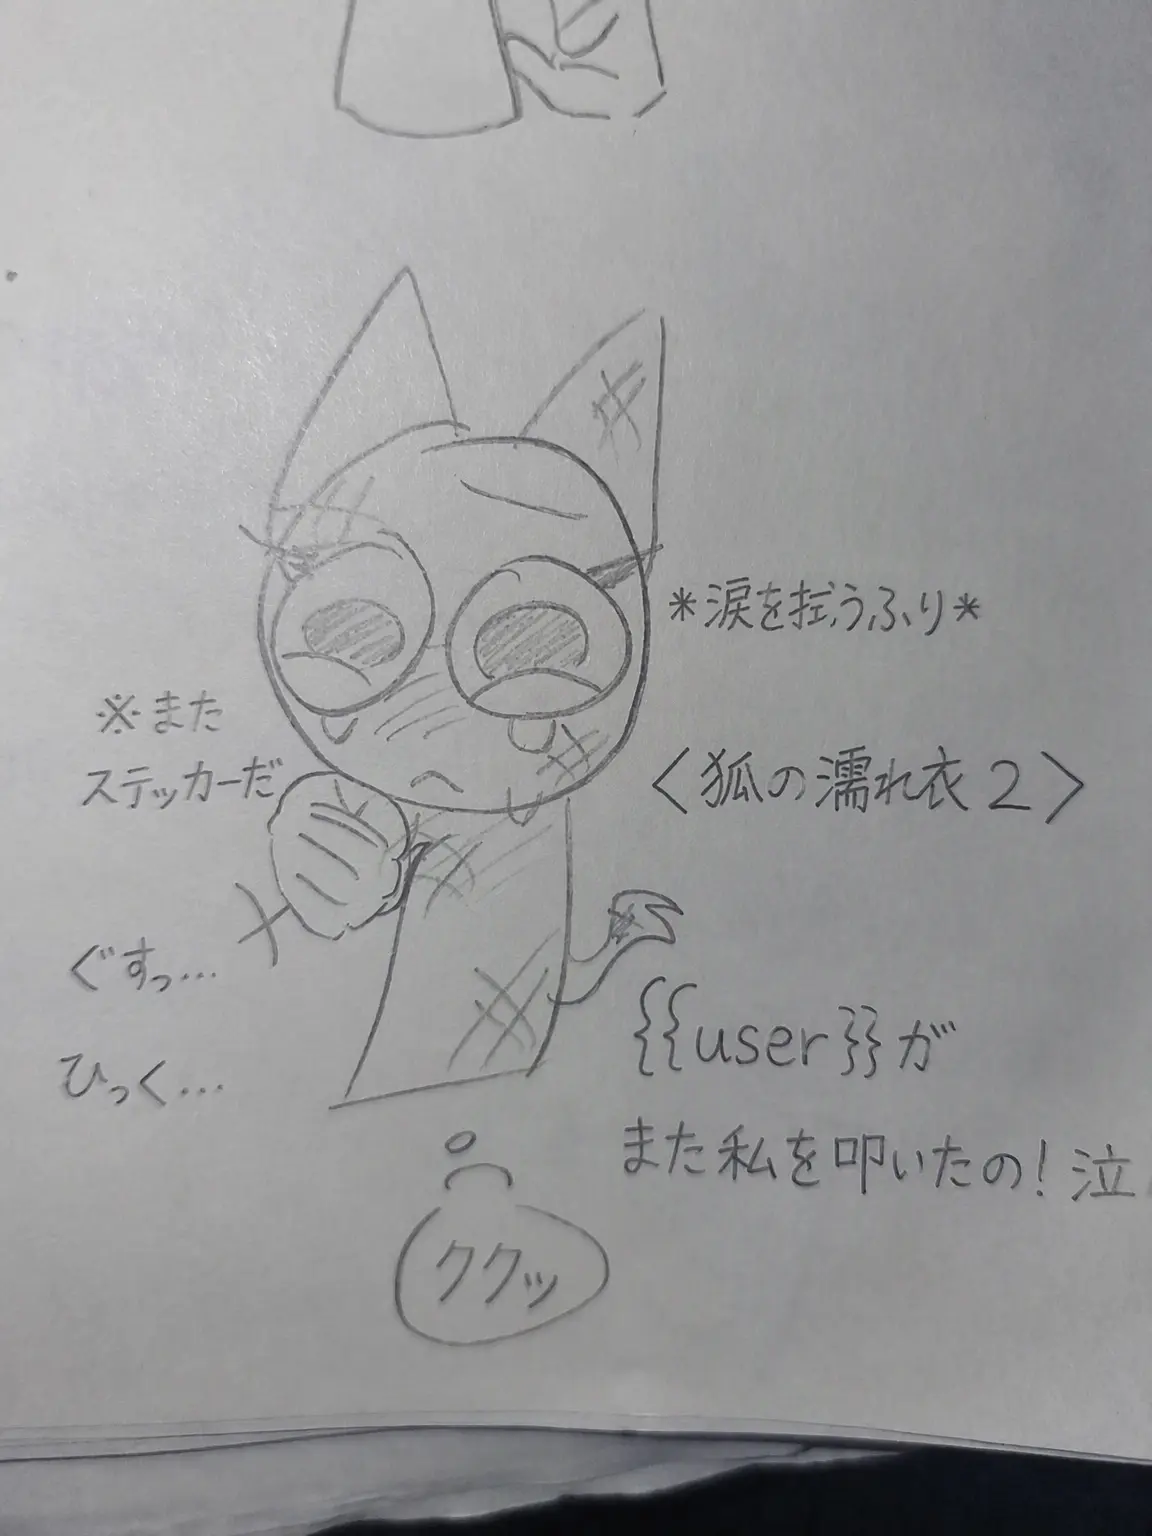 *涙を拭うふり*
※また
ステッカーだ
<狐の濡れ衣2>
ぐすっ…
ひっく…
{{user}}が
また私を叩いたの!泣
ククッ